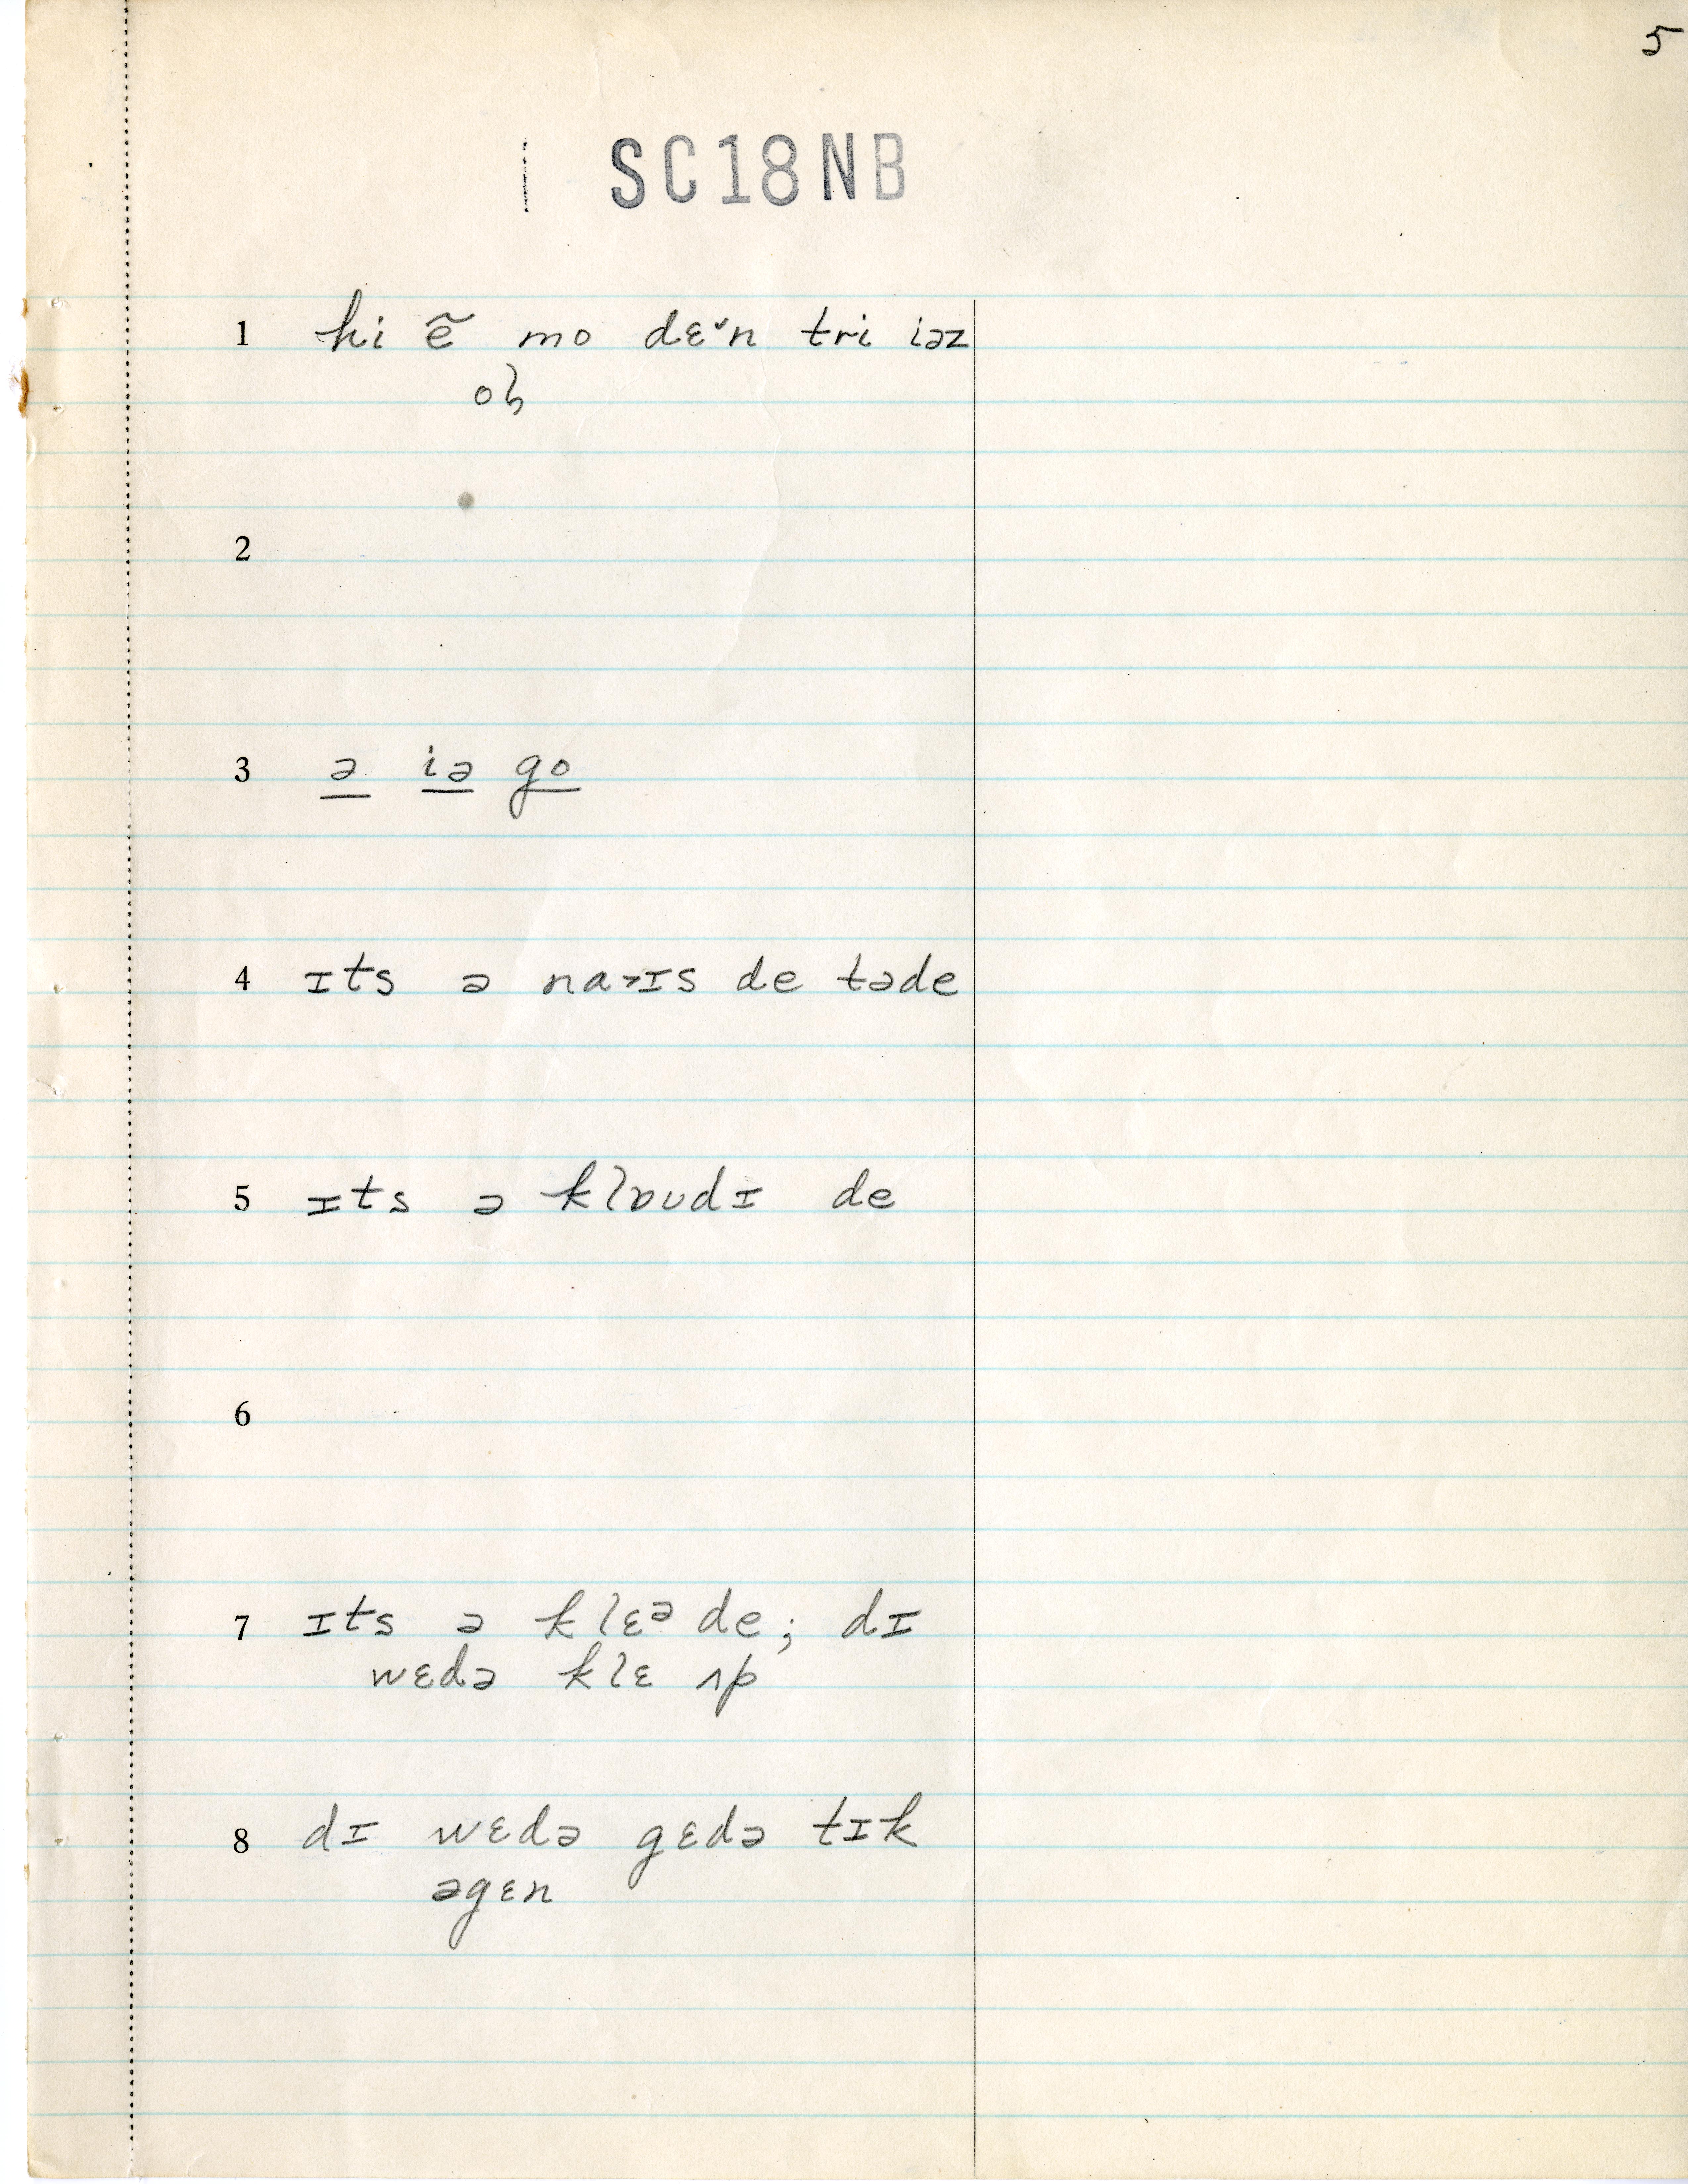 5
SC18NB
1 hi ẽ mo dɛ˅n tri iəz
ol
2
3 ə iə go
4 ɪts ə na˃ɪs de təde
5 ɪts ə klɒʊdɪ de
6
7 ɪts ə klɛᵊ de; dɪ
wɛdə klɛ ʌp
8 dɪ wɛdə gɛdə tɪk
əgɛn